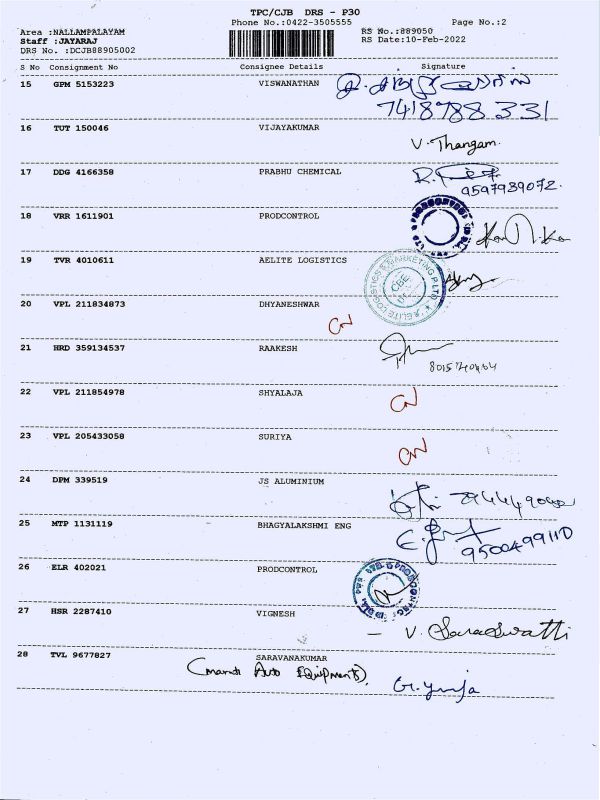 TPC/CJB DRS - P30
Phone No.:0422-3505555 Page No.:2
Area :NALLAMPALAYAM RS No.:889050
Staff :JAYARAJ RS Date:10-Feb-2022
DRS No. :DCJB88905002
S No Consignment No Consignee Details Signature
15 GPM 5153223 VISWANATHAN
7418788331
16 TUT 150046 VIJAYAKUMAR
V. Thangam.
17 DDG 4166358 PRABHU CHEMICAL
9597939072.
18 VRR 1611901 PRODCONTROL
19 TVR 4010611 AELITE LOGISTICS
20 VPL 211834873 DHYANESHWAR
CN
21 HRD 359134537 RAAKESH
22 VPL 211854978 SHYALAJA
CN
23 VPL 205433058 SURIYA
CN
24 DPM 339519 JS ALUMINIUM
25 MTP 1131119 BHAGYALAKSHMI ENG
9500499110
26 ELR 402021 PRODCONTROL
27 HSR 2287410 VIGNESH
V. Saraswathi
28 TVL 9677827 SARAVANAKUMAR
Auto Equipments).